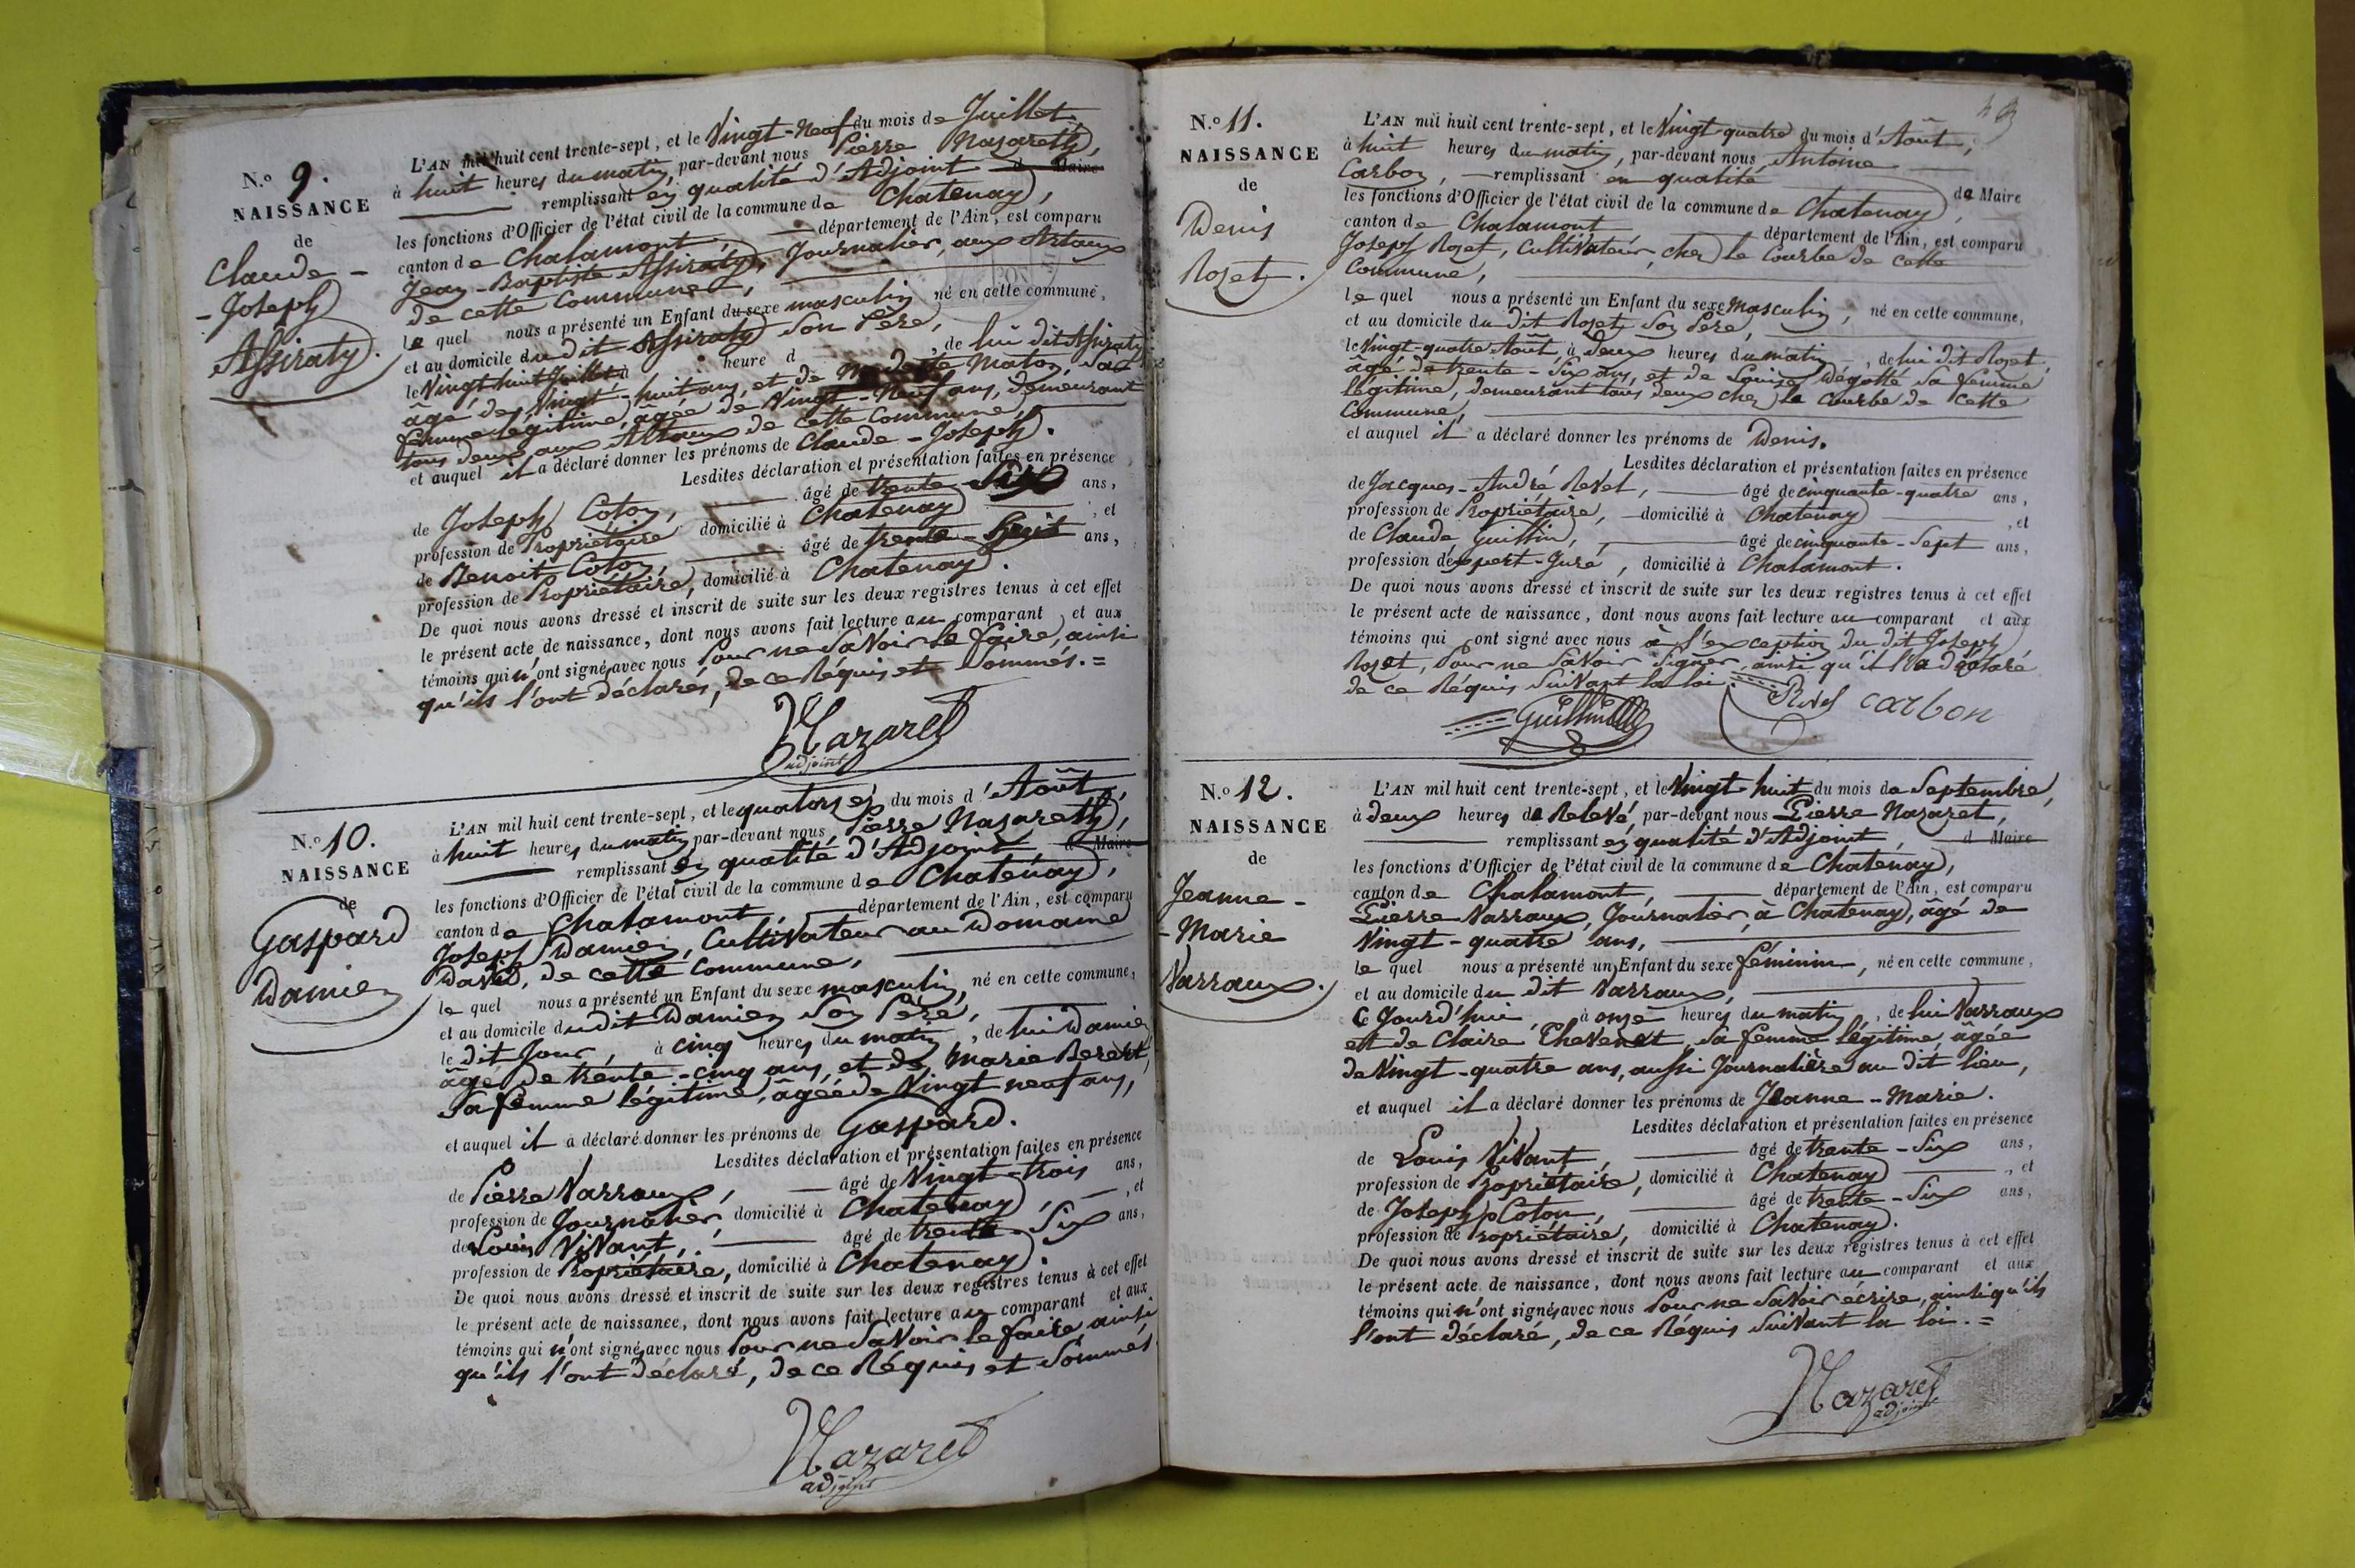 N.º 9.
NAISSANCE
de
Claude-
-Joseph
Assiraty.
L'AN mil huit cent trente-sept, et le Vingt-Neuf du mois de Juillet,
à huit heures du matin, par-devant nous Pierre Nazareth,
remplissant en qualité d'Adjoint d Maire
les fonctions d'Officier de l'état civil de la commune de Chatenay,
canton de Chalamont, département de l'Ain, est comparu
Jean-Baptiste Assiraty, Journalier, aux
de cette Commune,
le quel nous a présenté un Enfant du sexe masculin né en cette commune,
et au domicile du dit Assiraty Son Père,
le Vingt huit Juillet à heure d , de lui dit Assiraty
âgé de Vingt-huit ans, et de Modeste Maton, sa
femme légitime, âgée de Vingt-Neuf ans, demeurant
tous deux aux de cette Commune,
et auquel il a déclaré donner les prénoms de Claude-Joseph.
Lesdites déclaration et présentation faites en présence
de Joseph Coton, âgé de trente-Six ans,
profession de Propriétaire domicilié à Chatenay, et
de Benoit Coton, âgé de trente-huit ans,
profession de Propriétaire, domicilié à Chatenay.
De quoi nous avons dressé et inscrit de suite sur les deux registres tenus à cet effet
le présent acte de naissance, dont nous avons fait lecture au comparant et aux
témoins qui n'ont signé, avec nous Pour ne Savoir le faire, ainsi
qu'ils l'ont déclarés, de ce Réquis et Sommés.=
Nazaret
adjoint
N.º 10.
NAISSANCE
de
Gaspard
Damien
L'AN mil huit cent trente-sept, et le quatorze du mois d'Août,
à huit heures du matin par-devant nous, Pierre Nazareth,
remplissant en qualité d'Adjoint d Maire
les fonctions d'Officier de l'état civil de la commune de Chatenay,
canton de Chalamont, département de l'Ain, est comparu
Joseph Damien, Cultivateur au Domaine
David, de cette Commune,
le quel nous a présenté un Enfant du sexe masculin, né en cette commune,
et au domicile du dit Damien Son Père,
le dit Jour, à cinq heures du matin, de lui Damien
âgé de trente-cinq ans, et de Marie
Sa femme légitime, âgée de Vingt neuf ans,
et auquel il a déclaré donner les prénoms de Gaspard.
Lesdites déclaration et présentation faites en présence
de Pierre Narraux, âgé de Vingt-trois ans,
profession de Journalier, domicilié à Chatenay, et
de Louis Vivant, âgé de trente-Six ans,
profession de Propriétaire, domicilié à Chatenay.
De quoi nous avons dressé et inscrit de suite sur les deux registres tenus à cet effet
le présent acte de naissance, dont nous avons fait lecture au comparant et aux
témoins qui n'ont signé, avec nous Pour ne Savoir le faire ainsi
qu'ils l'ont déclaré, de ce Réquis et Sommés
Nazaret
adjoint
N.º 11.
NAISSANCE
de
Denis
Rozet.
L'AN mil huit cent trente-sept, et le Vingt-quatre du mois d'Août,
à huit heures du matin, par-devant nous Antoine
Carbon, remplissant en qualité de Maire
les fonctions d'Officier de l'état civil de la commune de Chatenay,
canton de Chalamont département de l'Ain, est comparu
Joseph Rozet, Cultivateur, chez le Courbe de cette
Commune,
le quel nous a présenté un Enfant du sexe Masculin, né en cette commune,
et au domicile du dit Rozet Son Père,
le Vingt-quatre Août, à deux heures du matin, de lui dit Rozet,
âgé de trente-Six ans, et de Louise Dégotté Sa femme
légitime, demeurant tous deux chez le Courbe de cette
Commune,
et auquel il a déclaré donner les prénoms de Denis.
Lesdites déclaration et présentation faites en présence
de Jacques-André Revel, âgé de cinquante-quatre ans,
profession de Propriétaire, domicilié à Chatenay, et
de Claude Guillin, âgé de cinquante-Sept ans,
profession d'expert-Juré, domicilié à Chalamont.
De quoi nous avons dressé et inscrit de suite sur les deux registres tenus à cet effet
le présent acte de naissance, dont nous avons fait lecture au comparant et aux
témoins qui ont signé avec nous à l'exception du dit Joseph
Rozet, Pour ne Savoir Signer, ainsi qu'il l'a déclaré
de ce Réquis Suivant la loi.
Revel Carbon
Guillin
N.º 12.
NAISSANCE
de
Jeanne-
-Marie
Narraux.
L'AN mil huit cent trente-sept, et le Vingt-huit du mois de Septembre,
à deux heures de Relevé, par-devant nous Pierre Nazaret,
remplissant en qualité d'Adjoint, d Maire
les fonctions d'Officier de l'état civil de la commune de Chatenay,
canton de Chalamont, département de l'Ain, est comparu
Pierre Narraux, Journalier, à Chatenay, âgé de
Vingt-quatre ans,
le quel nous a présenté un Enfant du sexe féminin, né en cette commune,
et au domicile du dit Narraux,
Ce Jourd'hui, à onze heures du matin, de lui Narraux
et de Claire Thevenet, Sa femme légitime, âgée
de Vingt-quatre ans, aussi Journalière au dit lieu,
et auquel il a déclaré donner les prénoms de Jeanne-Marie.
Lesdites déclaration et présentation faites en présence
de Louis Vivant, âgé de trente-Six ans,
profession de Propriétaire, domicilié à Chatenay, et
de Joseph Coton, âgé de trente-Six ans,
profession de Propriétaire, domicilié à Chatenay.
De quoi nous avons dressé et inscrit de suite sur les deux registres tenus à cet effet
le présent acte de naissance, dont nous avons fait lecture au comparant et aux
témoins qui n'ont signé, avec nous Pour ne Savoir écrire, ainsi qu'ils
l'ont déclaré, de ce Réquis Suivant la loi.=
Nazaret
adjoint